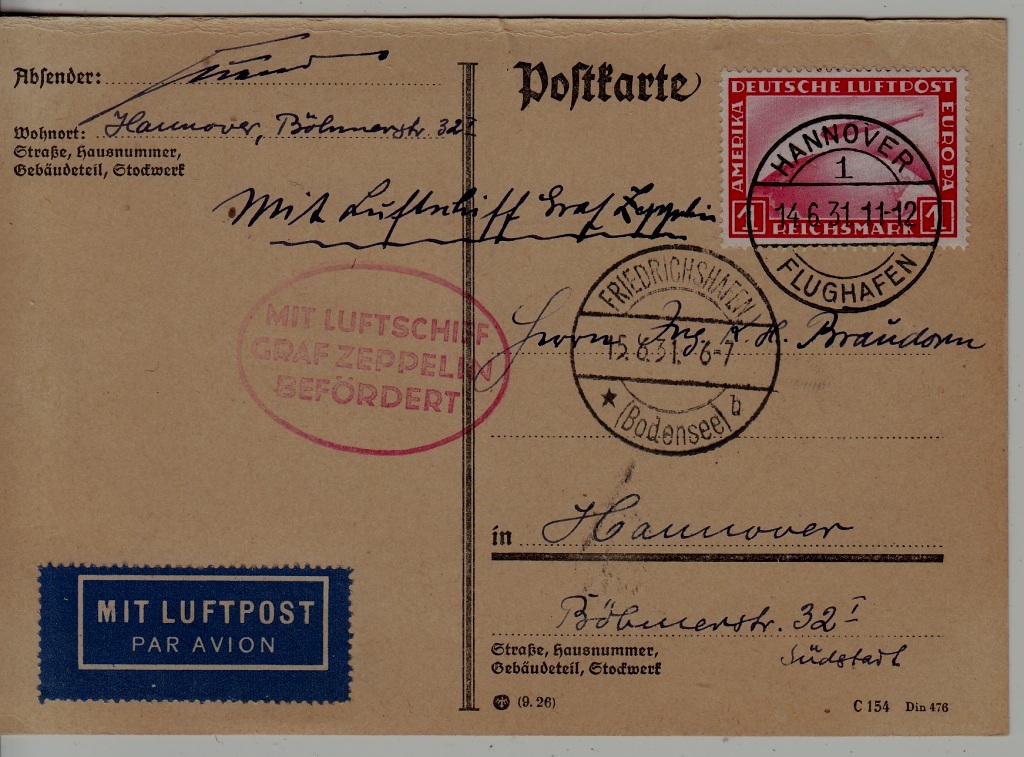 Absender:
Wohnort: Hannover, Böhmerstr. 32 I
Straße, Hausnummer,
Gebäudeteil, Stockwerk
Postkarte
DEUTSCHE LUFTPOST
AMERIKA
EUROPA
1 REICHSMARK 1
HANNOVER
1
14.6.31.11-12
FLUGHAFEN
Mit Luftschiff Graf Zeppelin
MIT LUFTSCHIFF
GRAF ZEPPELIN
BEFÖRDERT
FRIEDRICHSHAFEN
15.6.31. 6-7
(Bodensee) b
Herrn Ing. K. H. Braudorn
in Hannover
Böhmerstr. 32 I
Südstadt
Straße, Hausnummer,
Gebäudeteil, Stockwerk
MIT LUFTPOST
PAR AVION
(9. 26)
C 154 Din 476